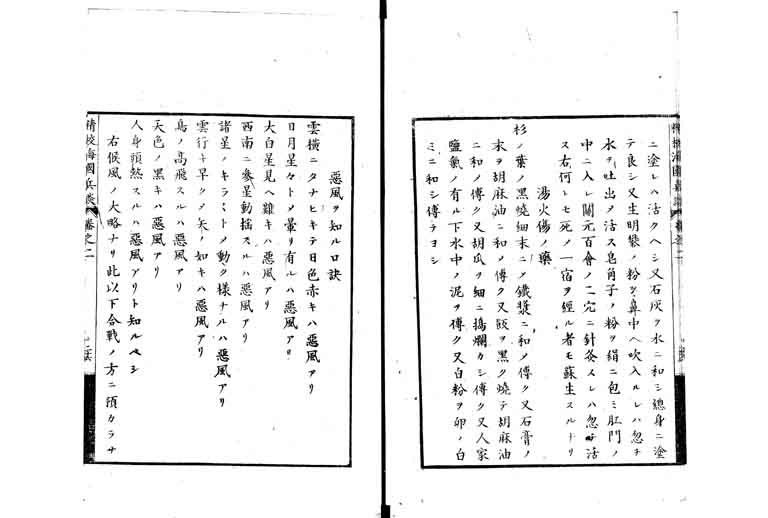 ニ塗レハ活クヘシ又石灰ヲ水ニ和シ總身ニ塗
テ良シ又生明礬ノ粉ヲ鼻中ヘ吹入ルレハ忽チ
水ヲ吐出メ活ス皂角子ノ粉ヲ絹ニ包ミ肛門ノ
中ニ入レ關元百會ノ二穴ニ針灸スレハ忽チ活
ス右何トモ死ノ一宿ヲ經ル者モ蘇生スルトリ
湯火傷ノ藥
杉ノ葉ノ黑燒細末ニノ鐵漿ニ和ノ傳ク又石膏ノ
末ヲ胡麻油ニ和ノ傳ク又ヲ黑ク燒テ胡麻油
ニ和ノ傳ク又胡瓜ヲ細ニ搗爛カシ傳ク又人家
鹽氣ノ有ル下水中ノ泥ヲ傳ク又白粉ヲ卵ノ白
ミニ和シ傳テヨシ
惡風ヲ知ル口訣
雲橫ニタナヒキテ日色赤キハ惡風アリ
日月星々トメ暈リ有ルハ惡風アリ
大白星見ヘ難キハ惡風アリ
西南ニ參星動揺スルハ惡風アリ
諸星ノキラミトノ動ク樣ナルハ惡風アリ
雲行キ早クメ矢ノ如キハ惡風アリ
鳥ノ高飛スルハ惡風アリ
天色ノ黑キハ惡風アリ
人身頭熱スルハ惡風アリト知ルヘシ
右候風ノ大略ナリ此以下合戰ノ方ニ預カラサ
精校海國兵談 卷之二